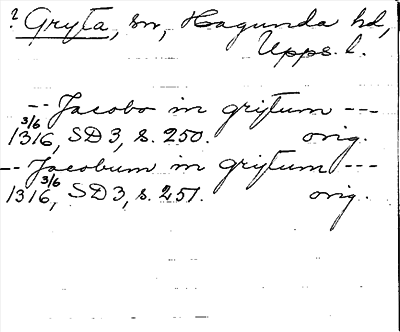 ? Gryta, sn, Hagunda hd,
Upps. l.
-- Jacobo in gritum ---
1316 3/6, SD 3, s. 250. orig.
-- Jacobum in gritum ---
1316 3/6, SD 3, s. 251. orig.